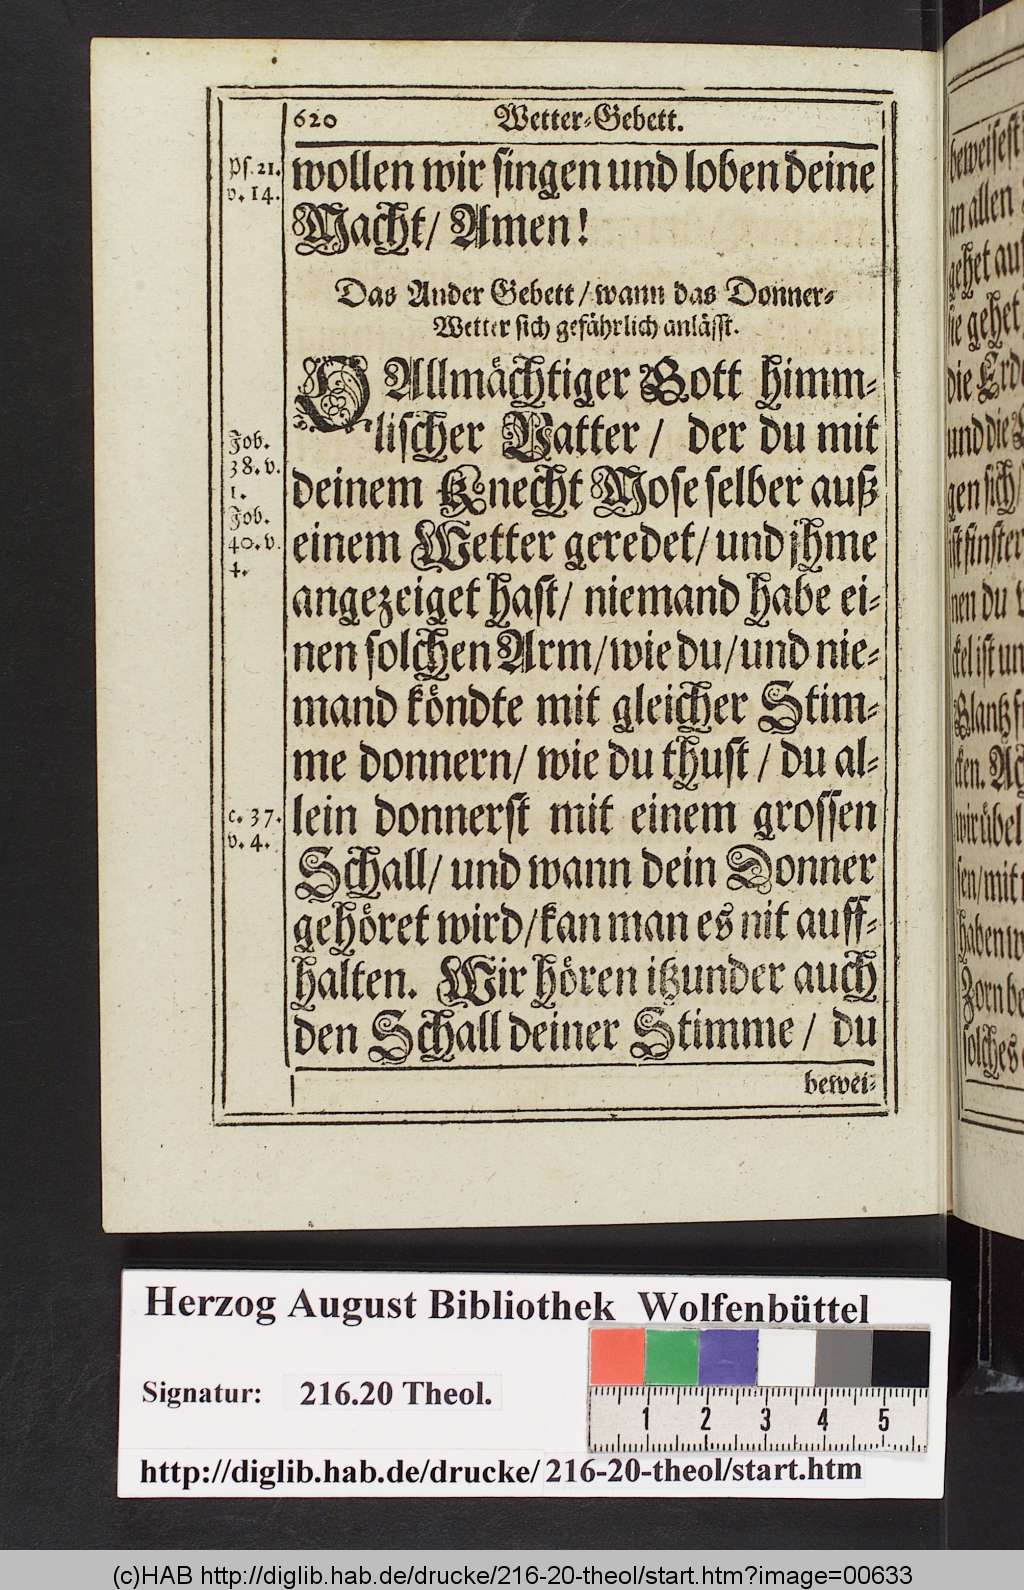 620 Wetter-Gebett.
Ps. 21.
v. 14.
wollen wir singen und loben deine
Macht/ Amen!
Das Ander Gebett/ wann das Donner-
Wetter sich gefährlich anlässt.
O Allmächtiger Gott himm-
lischer Vatter/ der du mit
deinem Knecht Mose selber auß
einem Wetter geredet/ und jhme
angezeiget hast/ niemand habe ei-
nen solchen Arm/ wie du/ und nie-
mand köndte mit gleicher Stim-
me donnern/ wie du thust/ du al-
lein donnerst mit einem grossen
Schall/ und wann dein Donner
gehöret wird/ kan man es nit auff-
halten. Wir hören itzunder auch
den Schall deiner Stimme/ du
bewei-
Job.
38. v.
1.
Job.
40. v.
4.
c. 37.
v. 4.
beweisest
an allen
gehet auf
sie gehet
die Erd
und die
gen sich/
ist finster
nen du
ckel ist un
Glantz f
cken. Ach
wir übel
sen/ mit
haben w
Zorn be
solches
Herzog August Bibliothek Wolfenbüttel
Signatur: 216.20 Theol.
1 2 3 4 5
http://diglib.hab.de/drucke/216-20-theol/start.htm
(c)HAB http://diglib.hab.de/drucke/216-20-theol/start.htm?image=00633